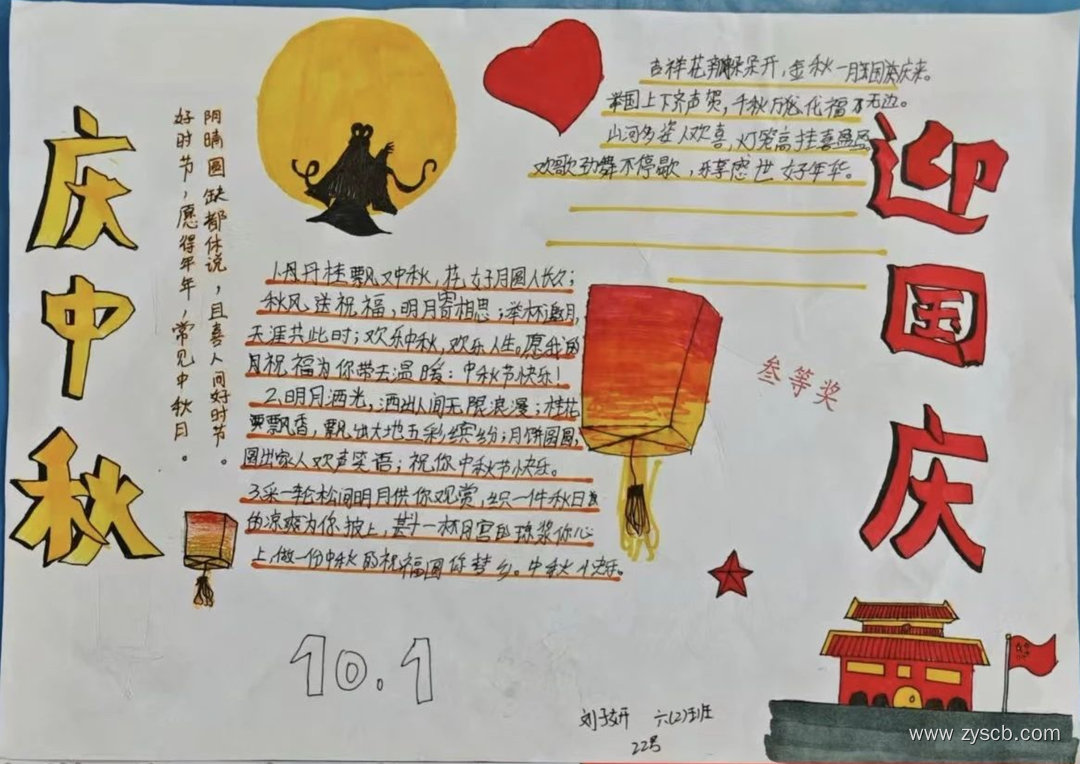 庆中秋
阴晴圆缺都休说，且喜人间好时节。
好时节，愿得年年，常见中秋月。
吉祥花瓣朵朵开，金秋一月国庆来。
举国上下齐声贺，千秋万代福无边。
山河多姿人欢喜，灯笼高挂喜盈盈
欢歌劲舞不停歇，乐享盛世好年华。
迎国庆
1.丹丹桂飘又中秋，花好月圆人长久；
秋风送祝福，明月寄相思；举杯邀月，
天涯共此时；欢乐中秋，欢乐人生。愿我的
月祝福为你带去温暖：中秋节快乐！
2.明月洒光，洒出人间无限浪漫；桂花
飘香，飘出大地五彩缤纷；月饼圆圆，
圆出家人欢声笑语；祝你中秋节快乐。
3.采一轮松间明月供你观赏，织一件秋日
的凉爽为你披上，甚十一杯月宫的琼浆你心
上，做一份中秋的祝福圆你梦乡。中秋快乐。
叁等奖
10.1
刘子妍 六(2)班
22号
www.zyscb.com